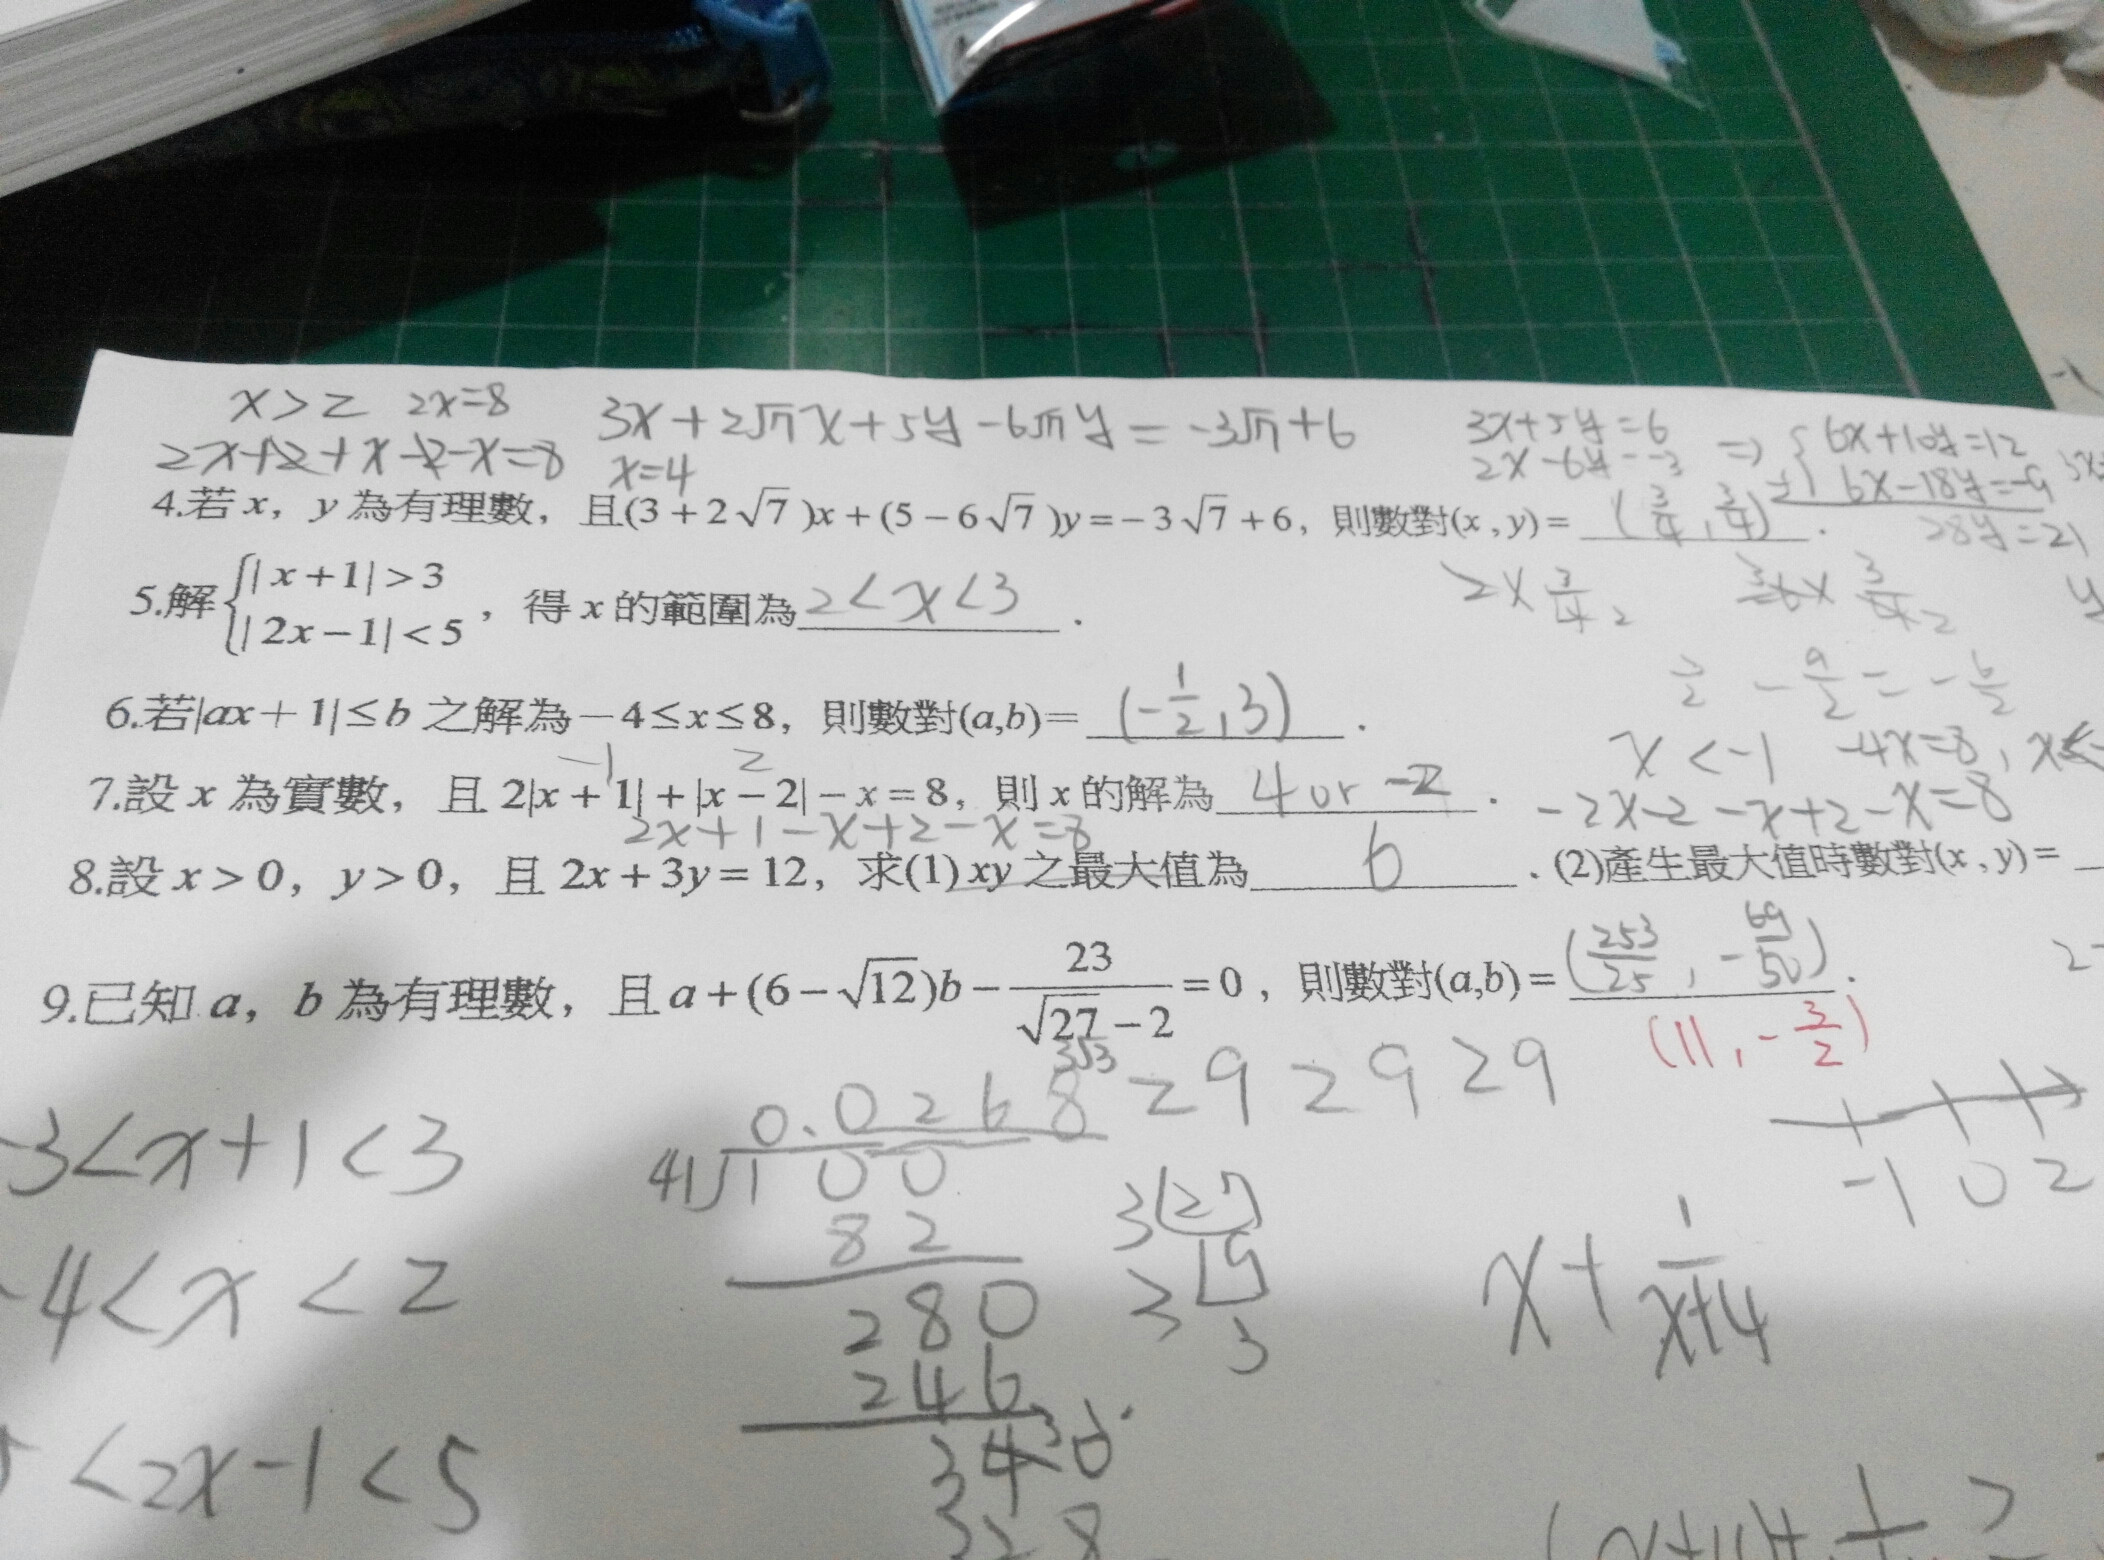 x>2 2x=8
2x+2+x-2-x=8 x=4
3x+2√7x+5y-6√7y=-3√7+6
3x+5y=6
2x-6y=-3
⇒{6x+10y=12
6x-18y=-9
28y=21
4.若x，y為有理數，且(3+2√7)x+(5-6√7)y=-3√7+6，則數對(x,y)=(3/4,3/4).
5.解{|x+1|>3
|2x-1|<5，得x的範圍為2<x<3.
2×3/4 3/4
6.若|ax+1|≤b之解為-4≤x≤8，則數對(a,b)=(-1/2,3).
3/2-9/2=-6/2
x<-1 -4x=8,
-1 2
7.設x為實數，且2|x+1|+|x-2|-x=8，則x的解為4 or -2.
-2x-2-x+2-x=8
2x+1-x+2-x=8
8.設x>0，y>0，且2x+3y=12，求(1)xy之最大值為6.(2)產生最大值時數對(x,y)=
9.已知a，b為有理數，且a+(6-√12)b-23/(√27-2)=0，則數對(a,b)=(253/25,-69/50).
3√3
(11,-3/2)
-3<x+1<3
0.0268292929
41)100
82
280
246
340
328
3(27
3 9
3
-1 0 2
-4<x<2
x+1/(x+4)
<2x-1<5